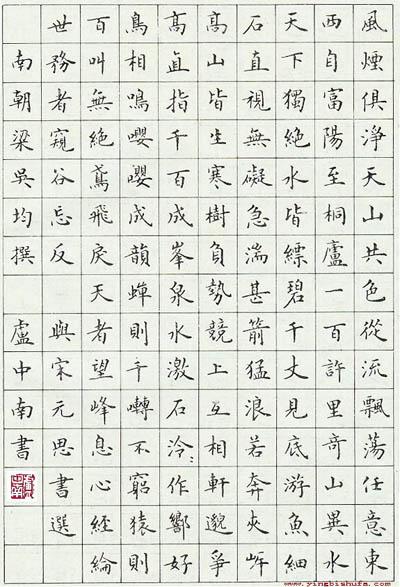 風煙俱淨天山共色從流飄蕩任意東
西自富陽至桐廬一百許里奇山異水
天下獨絕水皆縹碧千丈見底游魚細
石直視無礙急湍甚箭猛浪若奔夾岸
髙山皆生寒樹負勢競上互相軒邈爭
髙直指千百成峯泉水激石泠:作響好
鳥相鳴嚶嚶成韻蟬則千囀不窮猿則
百叫無絕鳶飛戾天者望峰息心經綸
世務者窺谷忘反 與宋元思書選
南朝梁吳均撰 盧中南書
www.yingbishufa.com